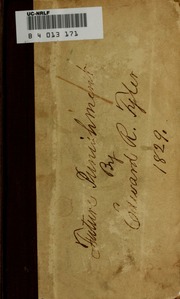 UC-NRLF
B 4 013 171
Future Punishment
By
Edward R. Tyler
1829.